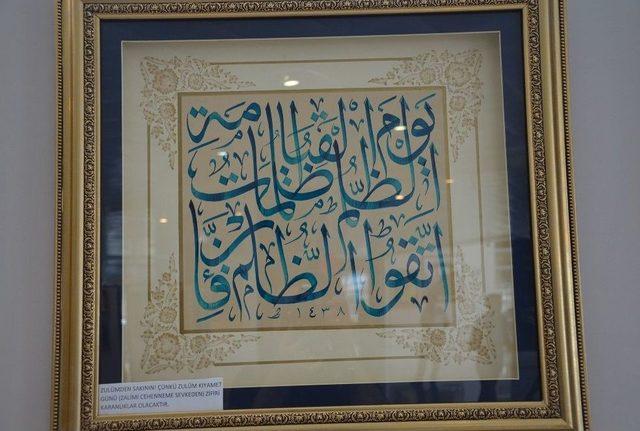 اتَّقُوا الظُّلْمَ فَإِنَّ
الظُّلْمَ ظُلُمَاتٌ
يَوْمَ الْقِيَامَةِ
١٤٣٨
ZULÜMDEN SAKININ! ÇÜNKÜ ZULÜM KIYAMET
GÜNÜ (ZALİMİ CEHENNEME SEVKEDEN) ZİFİRİ
KARANLIKLAR OLACAKTIR.